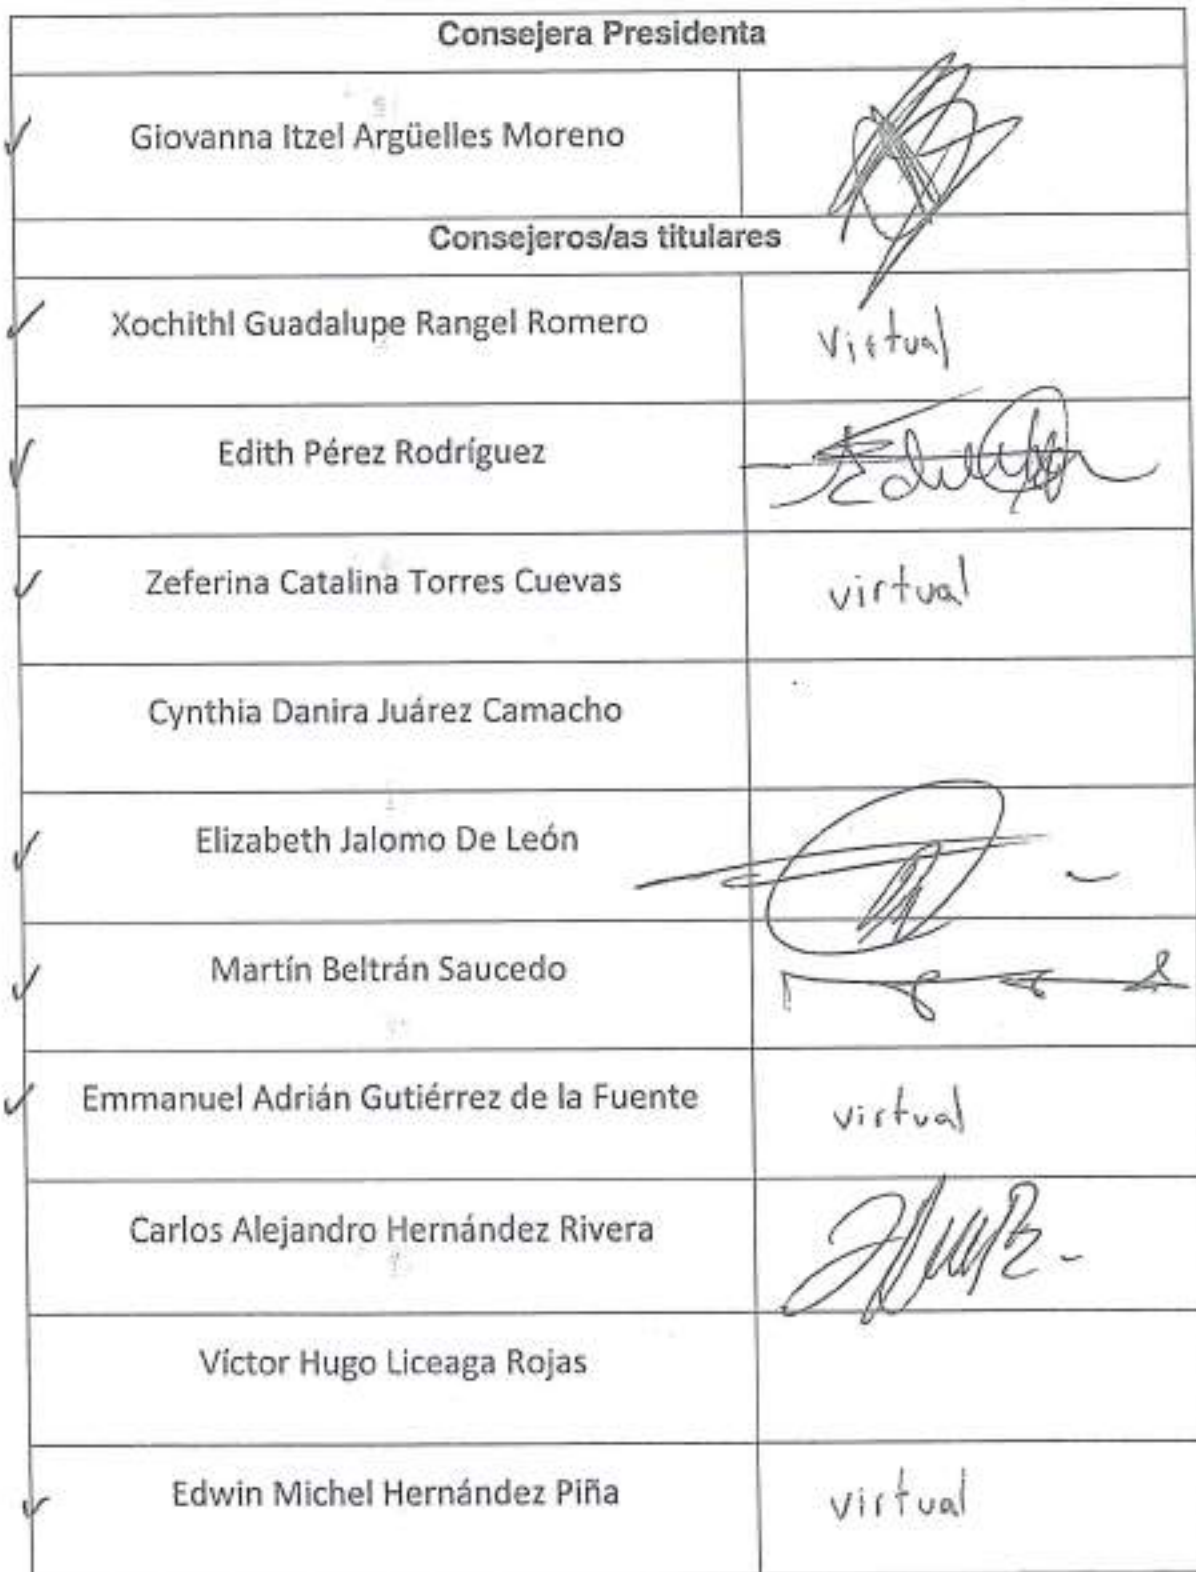 Consejera Presidenta
Giovanna Itzel Argüelles Moreno
Consejeros/as titulares
Xochithl Guadalupe Rangel Romero
virtual
Edith Pérez Rodríguez
Zeferina Catalina Torres Cuevas
virtual
Cynthia Danira Juárez Camacho
Elizabeth Jalomo De León
Martín Beltrán Saucedo
Emmanuel Adrián Gutiérrez de la Fuente
virtual
Carlos Alejandro Hernández Rivera
Víctor Hugo Liceaga Rojas
Edwin Michel Hernández Piña
virtual